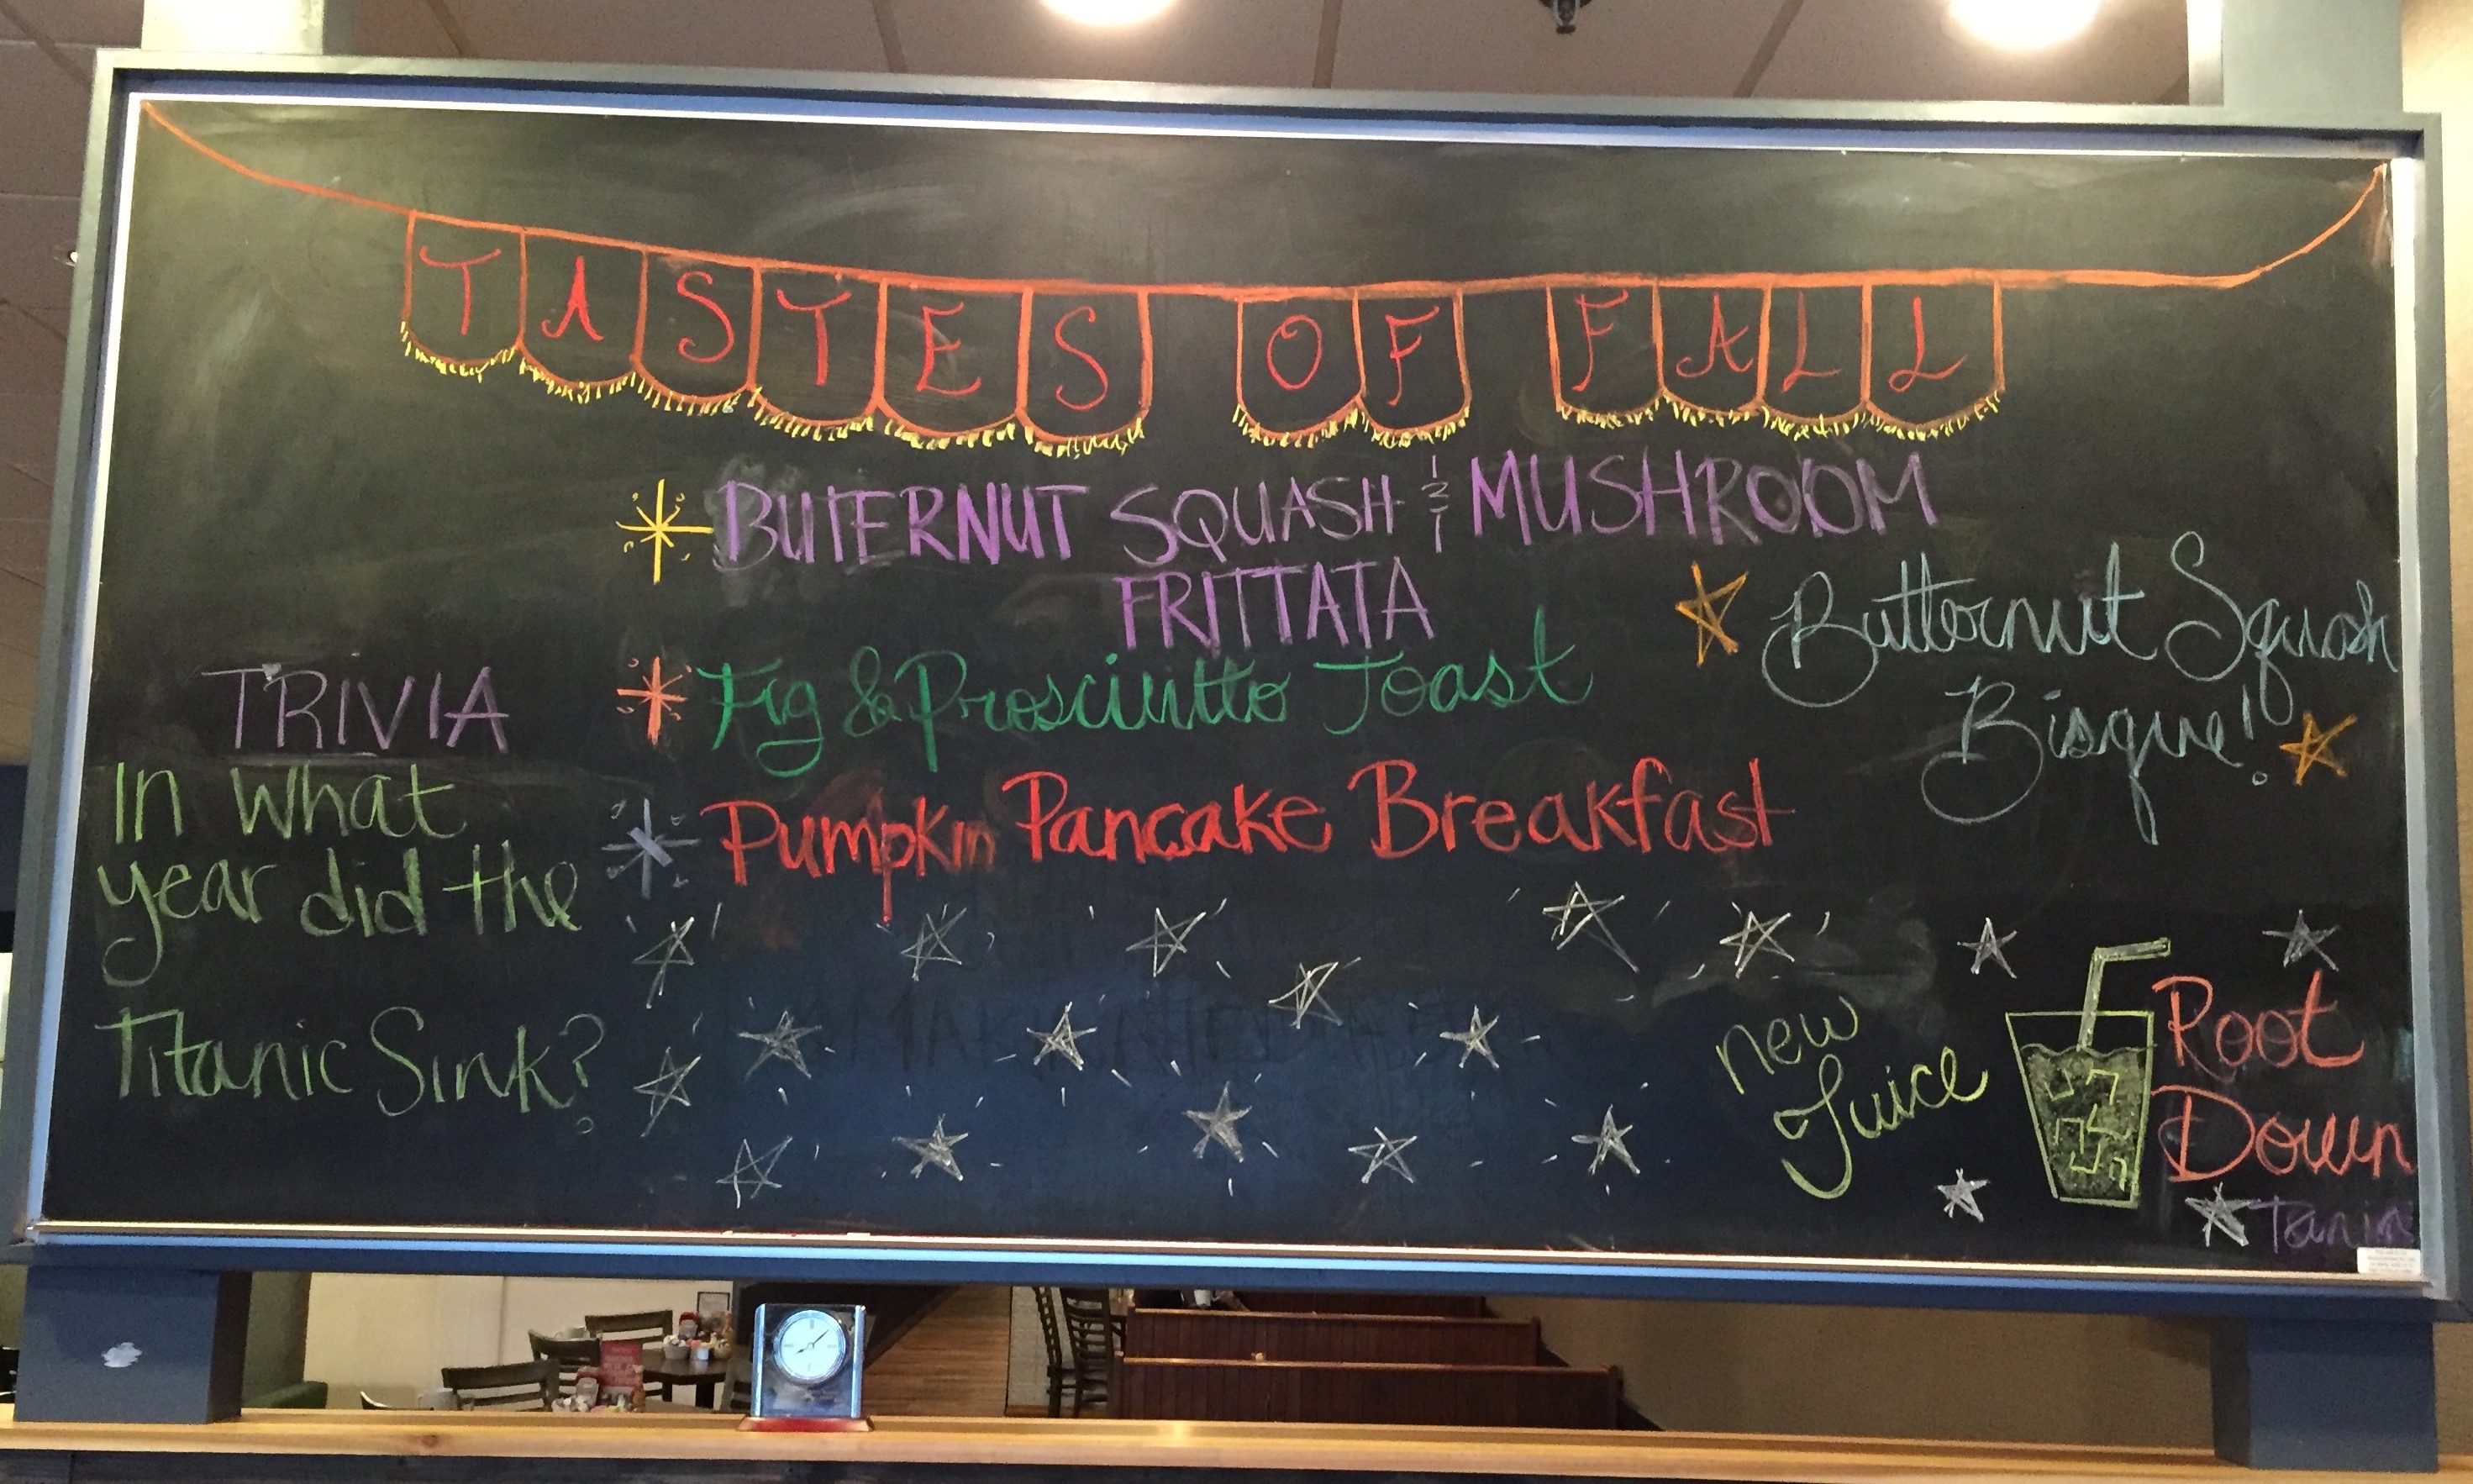 TASTES OF FALL
BUTERNUT SQUASH & MUSHROOM
FRITTATA
Fig & Prosciutto Toast
Pumpkin Pancake Breakfast
Butternut Squash
Bisque!
TRIVIA
In what
year did the
Titanic Sink?
new
Juice
Root
Down